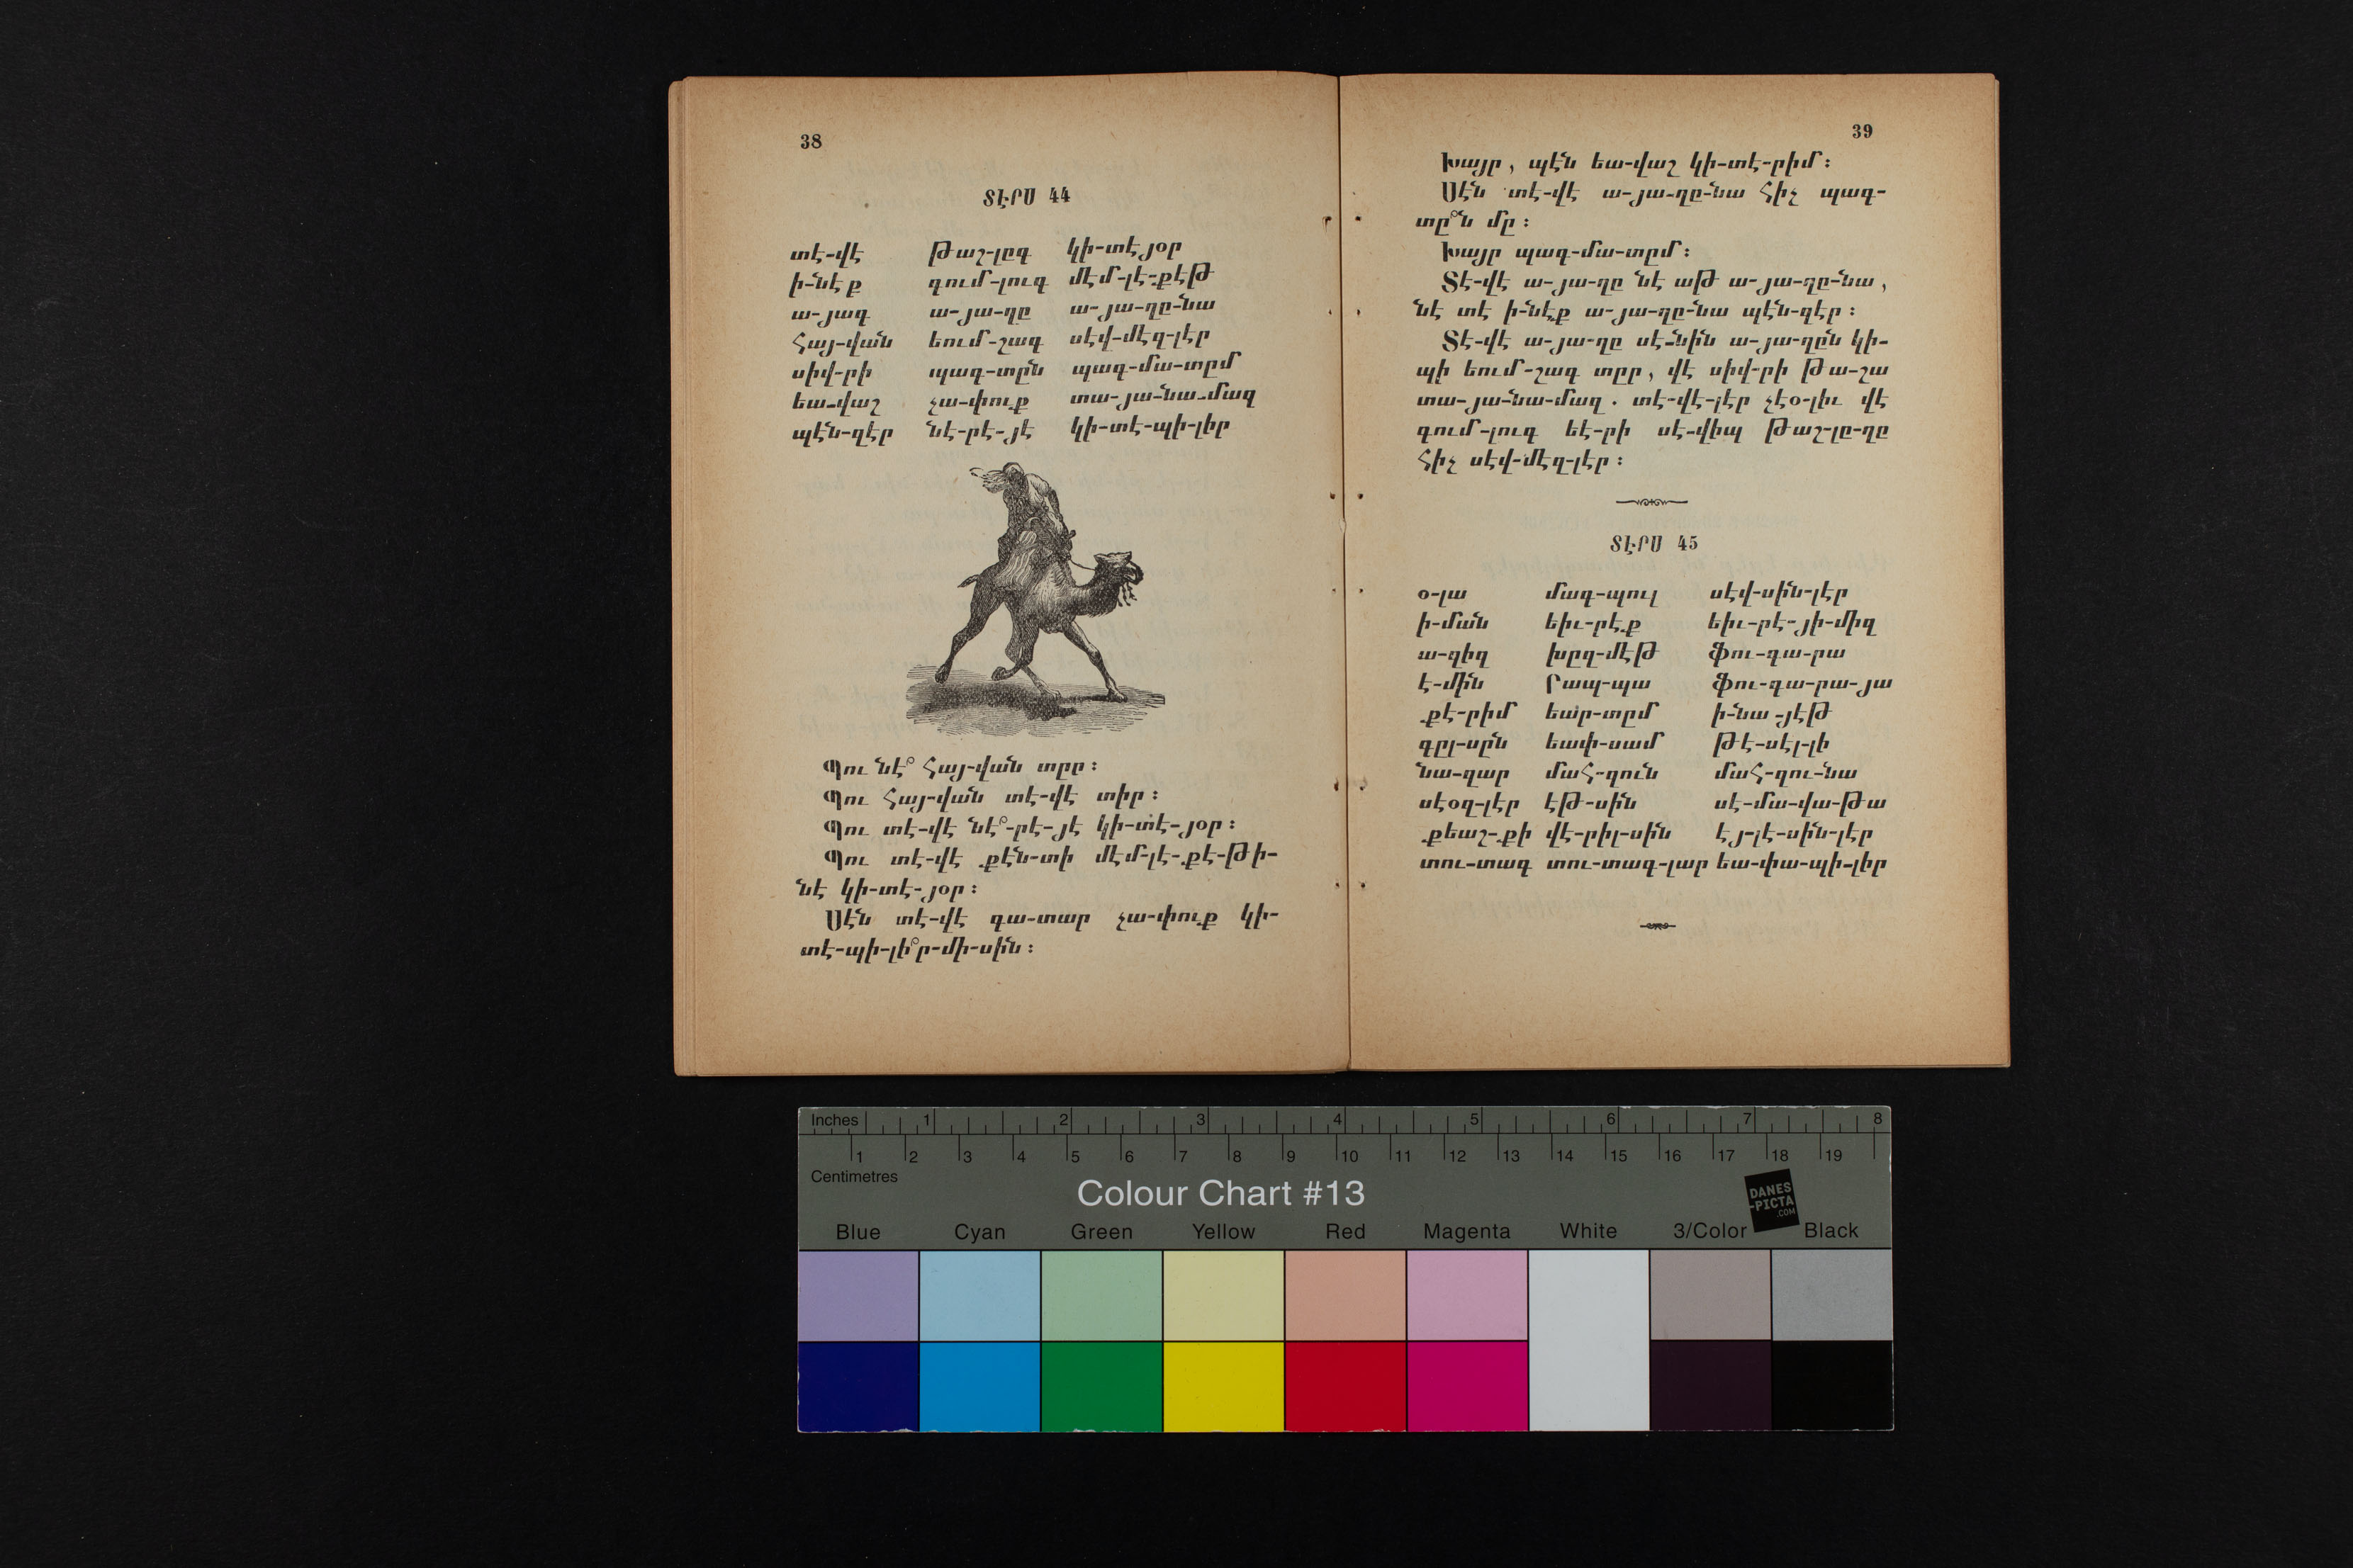 38
ՏԷՐՍ 44
տէ-վէ թաշ-լըգ կի-տէյօր
ի-նէք գում-լուգ մէմ-լէ-քէթ
ա-յագ ա-յա-ղը ա-յա-ղը-նա
հայ-վան եում-շագ սէվ-մէզ-լէր
սիվ-րի պագ-տըն պագ-մա-տըմ
եա-վաշ չա-փուք տա-յա-նա-մազ
պէն-զէր նէ-րէ-յէ կի-տէ-պի-լիր
Պու նէ՞ հայ-վան տըր։
Պու հայ-վան տէ-վէ տիր։
Պու տէ-վէ նէ՞-րէ-յէ կի-տէ-յօր։
Պու տէ-վէ քէն-տի մէմ-լէ-քէ-թի-
նէ կի-տէ-յօր։
Սէն տէ-վէ գա-տար չա-փուք կի-
տէ-պի-լի՞ր-մի-սին։
39
Խայր, պէն եա-վաշ կի-տէ-րիմ։
Սէն տէ-վէ ա-յա-ղը-նա հիչ պագ-
տը՞ն մը։
Խայր պագ-մա-տըմ։
Տէ-վէ ա-յա-ղը նէ աթ ա-յա-ղը-նա,
նէ տէ ի-նէք ա-յա-ղը-նա պէն-զէր։
Տէ-վէ ա-յա-ղը սէ-նին ա-յա-ղըն կի-
պի եում-շագ տըր, վէ սիվ-րի թա-շա
տա-յա-նա-մազ. տէ-վէ-լէր չէօ-լիւ վէ
գում-լուգ եէ-րի սէ-վիպ թաշ-լը-ղը
հիչ սէվ-մէզ-լէր։
ՏԷՐՍ 45
օ-լա մագ-պուլ սէվ-սին-լէր
ի-ման եիւ-րէք եիւ-րէ-յի-միզ
ա-զիզ խըզ-մէթ ֆու-գա-րա
է-մին Րապ-պա ֆու-գա-րա-յա
քէ-րիմ եար-տըմ ի-նա-յէթ
գըլ-սըն եափ-սամ թէ-սէլ-լի
նա-զար մահ-զուն մահ-զու-նա
սէօզ-լէր էթ-սին սէ-մա-վա-թա
քեաշ-քի վէ-րիլ-սին էյ-լէ-սին-լէր
տու-տագ տու-տագ-լար եա-փա-պի-լիր
Inches 1 2 3 4 5 6 7 8
1 2 3 4 5 6 7 8 9 10 11 12 13 14 15 16 17 18 19
Centimetres
Colour Chart #13
DANES
-PICTA
.COM
Blue Cyan Green Yellow Red Magenta White 3/Color Black